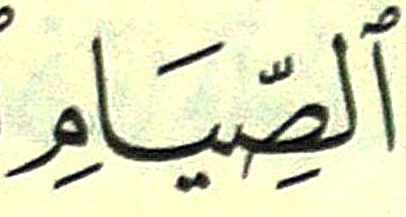 ٱلصِّيَامِ